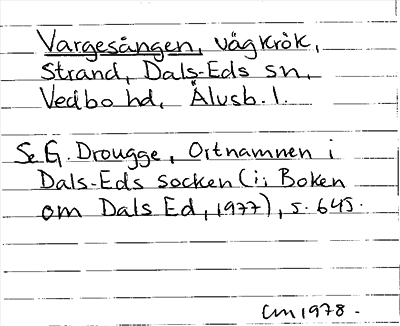 Vargesången, vägkrök,
Strand, Dals-Eds sn,
Vedbo hd, Älvsb. l.
Se G. Drougge, Ortnamnen i
Dals-Eds socken (i: Boken
om Dals Ed, 1977), s. 645.
CM 1978.